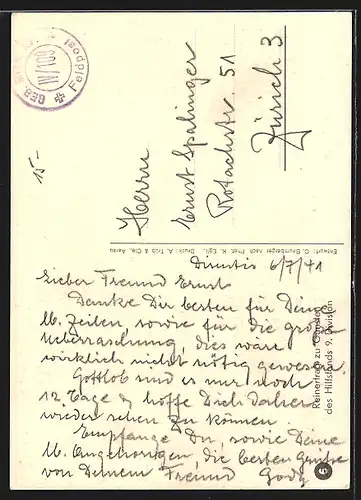 GEB.
IV/108
Feldpost
15-
Herrn
Ernst Spalinger
Rotachstr. 51
Zürich 3
Entwurf: O. Baumberger nach Phot. K. Egli. Druck: A. Trüb & Cie., Aarau
Reinertrag zu Gunsten
des Hilfsfonds 9. Division
6
Disentis 6/7/41
Lieber Freund Ernst.
Danke Dir besten für Deine
lb. Zeilen, sowie für die große
Ueberraschung, dies wäre
wirklich nicht nötig gewesen.
Gottlob sind es nur noch
12 Tage & hoffe Dich daher
wieder sehen zu können.
Empfange Du, sowie Deine
lb. Angehörigen, die besten Grüße
von Deinem Freund